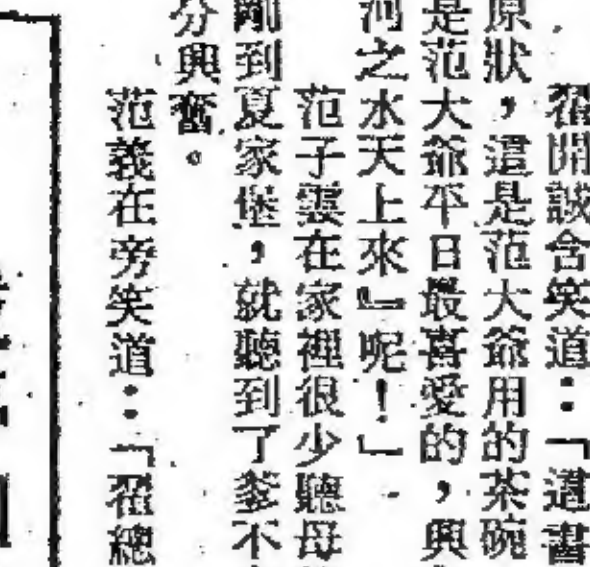 翟開誠含笑道：「這書
原狀，這是范大爺用的茶碗
是范大爺平日最喜愛的，興
河之水天上來』呢！」
范子雲在家裡很少聽母
剛到夏家堡，就聽到了爹不
分興奮。
范義在旁笑道：「翟總